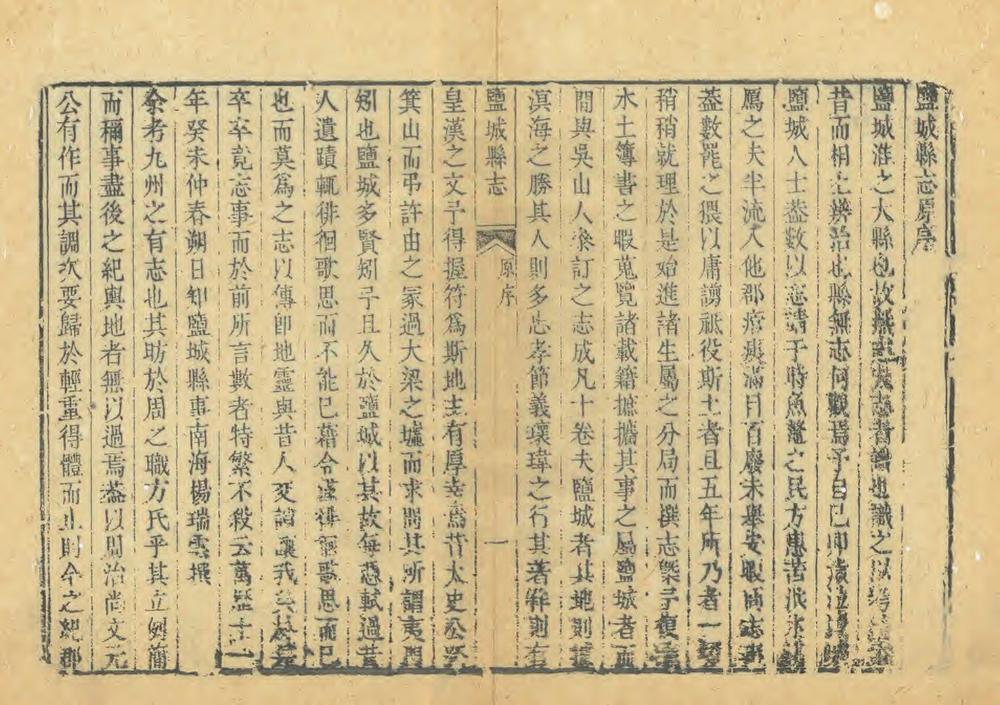 鹽城縣志原序
鹽城淮之大縣也故無志志者識也識之以考
昔而相土辨治也縣無志何觀焉予自己卯歲
鹽城人士蓋數以志請于時魚鼈之民方患苦洪水
鴈之夫半流入他郡瘡痍滿目百廢未舉安暇問志事
蓋數罷之猥以庸譾祗役斯土者且五年所乃者一
稍稍就理於是始進諸生屬之分局而撰志槩予復
水土簿書之暇蒐覽諸載籍摭摭其事之屬鹽城者而
間與吳山人參訂之志成凡十卷夫鹽城者其地則
濵海之勝其人則多忠孝節義瓌瑋之行其著作則有
鹽城縣志 原序 一
皇漢之文予得握符爲斯地主有厚幸焉昔太史公登
箕山而弔許由之冢過大梁之墟而求問其所謂夷門
矧也鹽城多賢矧予且久於鹽城以其故每憑軾過昔
人遺蹟輒徘徊歌思而不能已藉令僅徘徊歌思而已
也而莫爲之志以傳卽地靈與昔人交誚讓我矣
卒卒竟志事而於前所言數者特繁不殺云萬歷十一
年癸未仲春朔日知鹽城縣事南海楊瑞雲撰
余考九州之有志也其昉於周之職方氏乎其立例簡
而稱事盡後之紀輿地者無以過焉蓋以周治尚文元
公有作而其調次要歸於輕重得體而止則今之紀郡